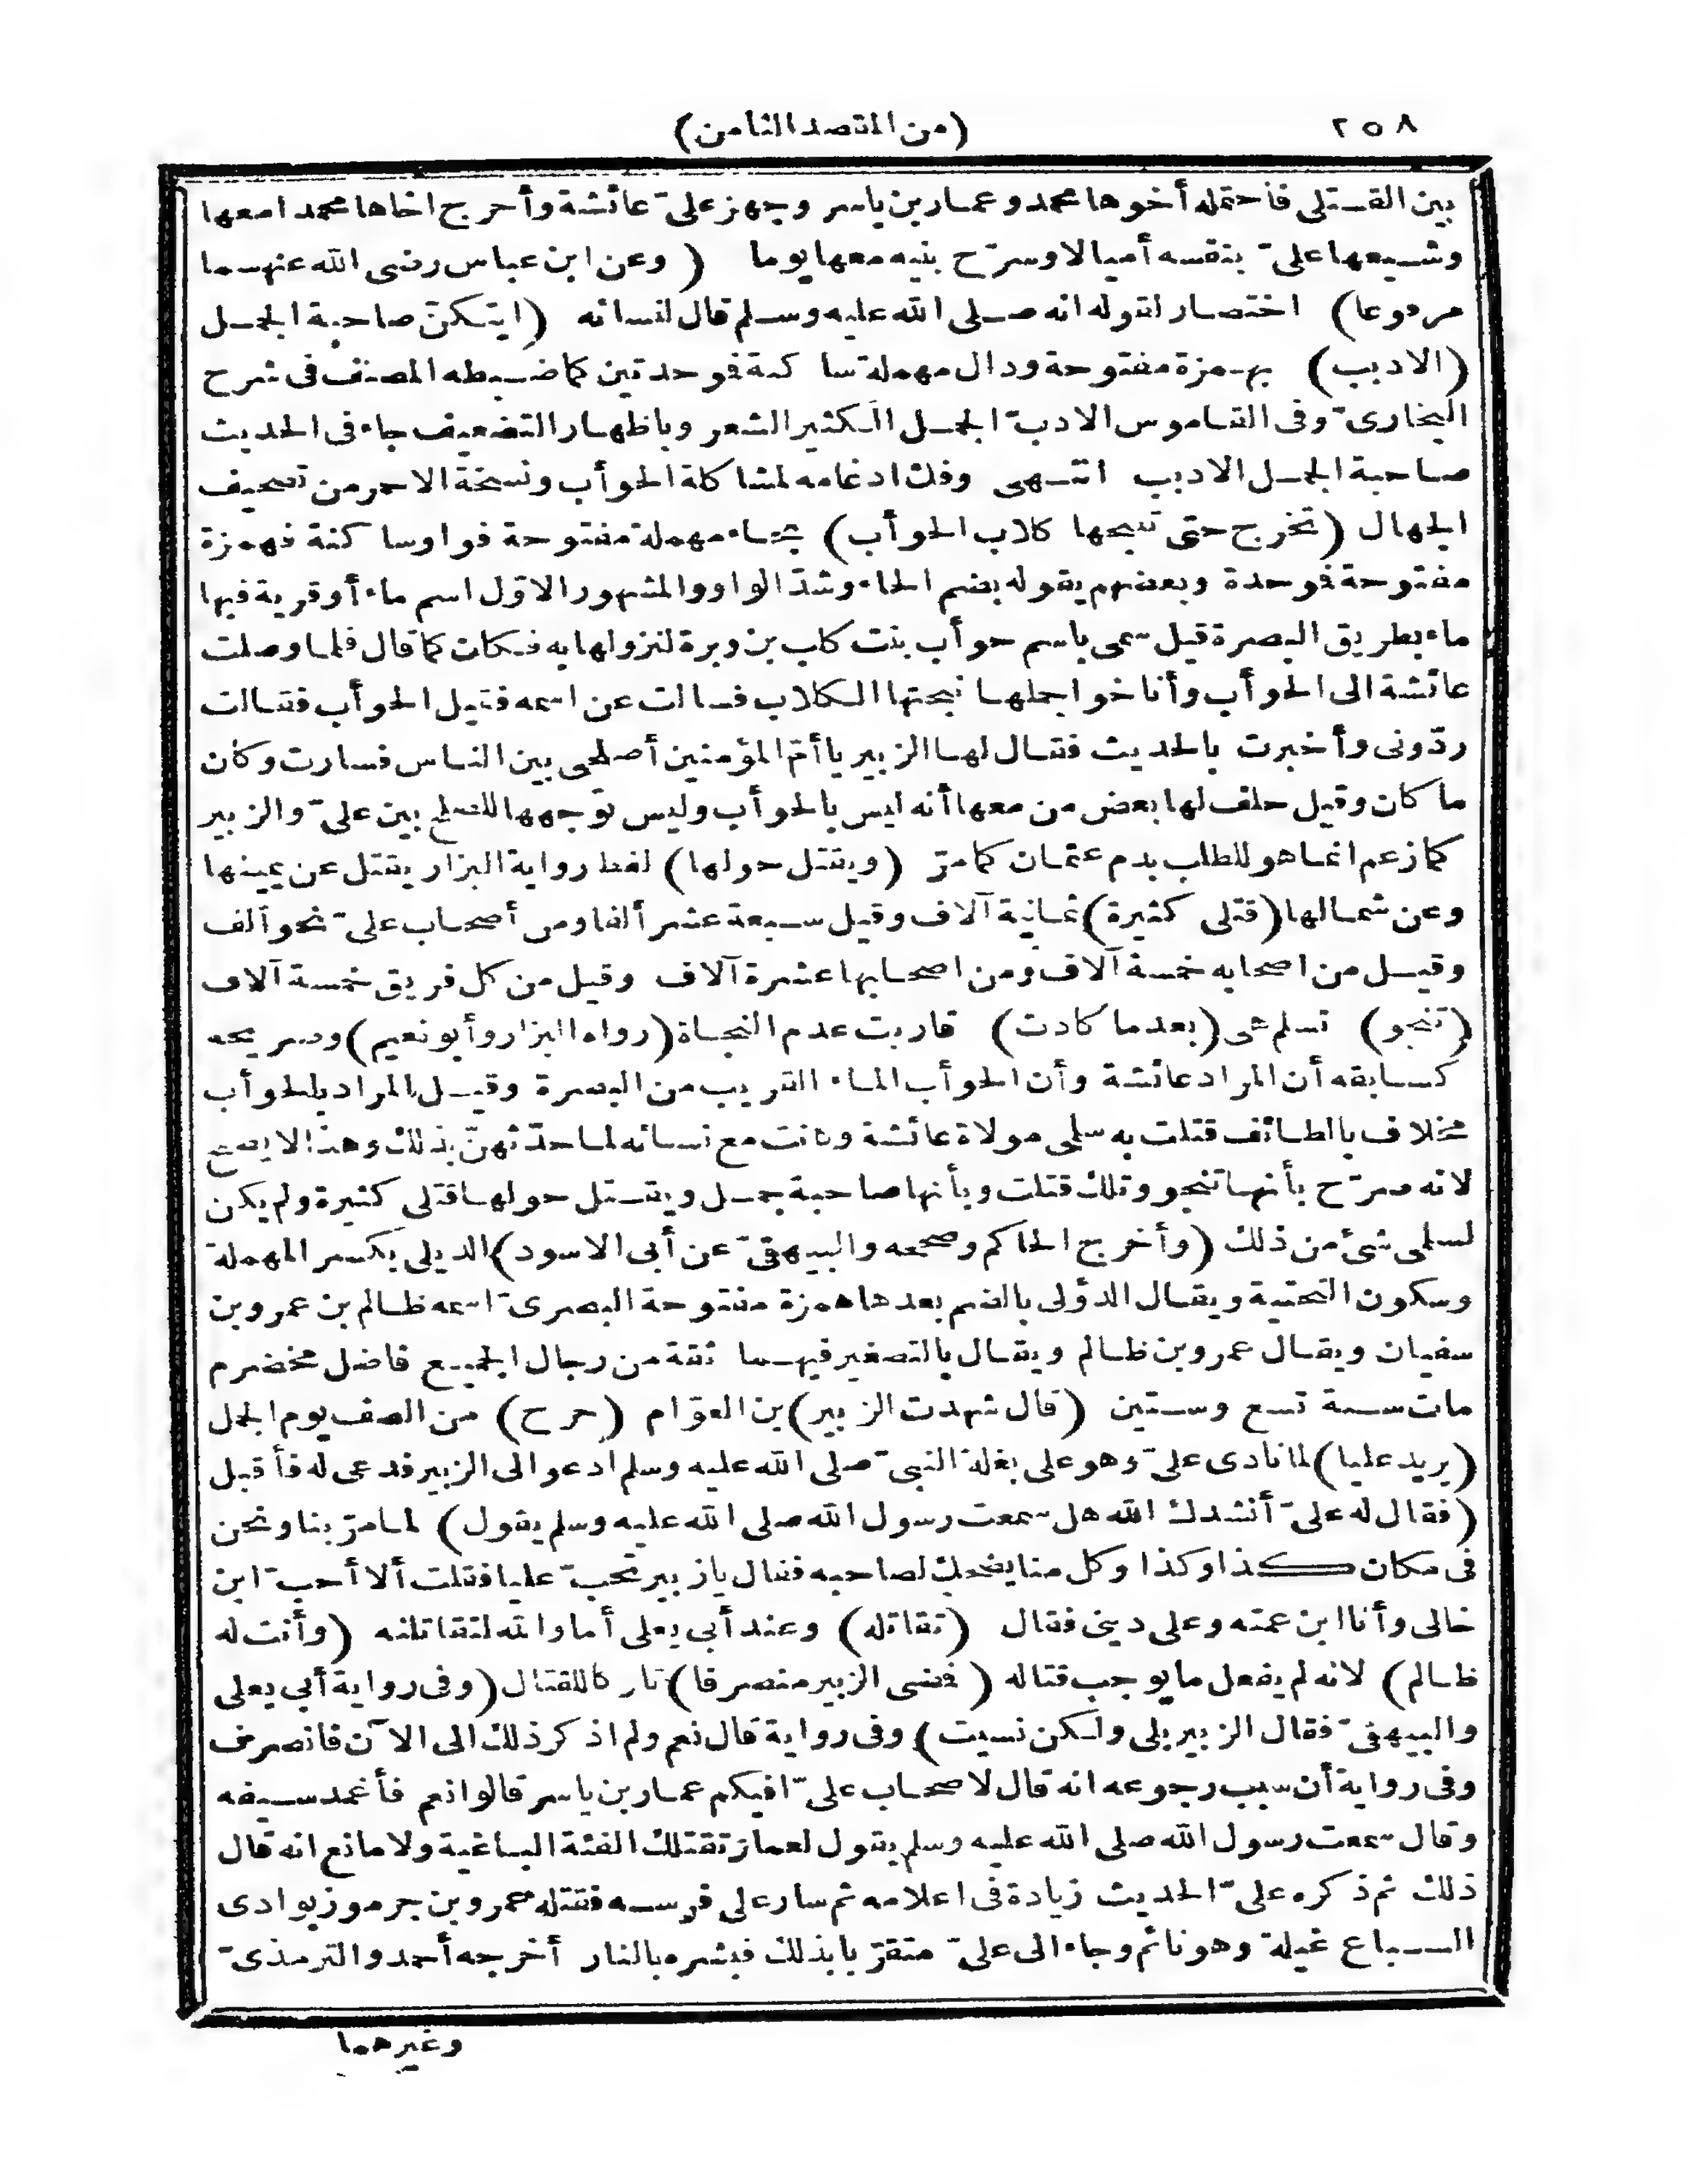 ٢٥٨
(من المقصد الثامن)
بين القتلى فاحتمله أخوها محمد وعمار بن ياسر وجهز علىّ عائشة وأخرج اخاها محمدا معها
وشيعها علىّ بنفسه أميالا وسرّح بنيه معها يوما (وعن ابن عباس رضى الله عنهما
مرفوعا) اختصار لقوله انه صلى الله عليه وسلم قال لنسائه (ايتكنّ صاحبة الجمل
(الادبب) بهمزة مفتوحة ودال مهملة ساكنة فوحدتين كما ضبطه المصنف فى شرح
البخارىّ وفى القاموس الادبّ الجمل الكثير الشعر وباظهار التضعيف جاء فى الحديث
صاحبة الجمل الادبب انتهى وفك ادغامه لمشاكلة الحوأب ونسخة الاحمر من تصحيف
الجهال (تخرج حتى تنبحها كلاب الحوأب) بحاء مهملة مفتوحة فواو ساكنة فهمزة
مفتوحة فوحدة وبعضهم يقوله بضم الحاء وشدّ الواو والمشهور الاوّل اسم ماء أو قرية فيها
ماء بطريق البصرة قيل سمى باسم حوأب بنت كلب بن وبرة لنزولها به فكان كما قال فلما وصلت
عائشة الى الحوأب وأناخوا جملها نبحتها الكلاب فسالت عن اسمه فقيل الحوأب فقالت
ردّونى وأخبرت بالحديث فقال لها الزبير يا أمّ المؤمنين أصلحى بين الناس فسارت وكان
ما كان وقيل حلف لها بعض من معها أنه ليس بالحوأب وليس توجهها للصلح بين علىّ والزبير
كما زعم انما هو للطلب بدم عثمان كما مرّ (ويقتل حولها) لفظ رواية البزار يقتل عن يمينها
وعن شمالها (قتلى كثيرة) ثمانية آلاف وقيل سبعة عشر ألفا ومن أصحاب علىّ نحو ألف
وقيل من اصحابه خمسة آلاف ومن اصحابها عشرة آلاف وقيل من كل فريق خمسة آلاف
(تنجو) تسلم هى (بعدما كادت) قاربت عدم النجاة (رواه البزار وأبو نعيم) وصريحه
كسابقه أن المراد عائشة وأن الحوأب الماء القريب من البصرة وقيل المراد بالحوأب
مخلاف بالطائف قتلت به سلمى مولاة عائشة وكانت مع نسائه لما حدّثهنّ بذلك وهذا لا يصح
لانه صرّح بأنها تنجو وتلك قتلت وبأنها صاحبة جمل ويقتل حولها قتلى كثيرة ولم يكن
لسلمى شئ من ذلك (وأخرج الحاكم وصححه والبيهقىّ عن أبى الاسود) الديلى بكسر المهملة
وسكون التحتية ويقال الدؤلى بالضم بعدها همزة مفتوحة البصرىّ اسمه ظالم بن عمرو بن
سفيان ويقال عمرو بن ظالم ويقال بالتصغير فيهما ثقة من رجال الجميع فاضل مخضرم
مات سنة تسع وستين (قال شهدت الزبير) بن العوّام (خرج) من الصف يوم الجمل
(يريد عليا) لما نادى علىّ وهو على بغلة النبىّ صلى الله عليه وسلم ادعو الى الزبير فدعى له فأقبل
(فقال له علىّ أنشدك الله هل سمعت رسول الله صلى الله عليه وسلم يقول) لما مرّ بنا ونحن
فى مكان كذا وكذا وكل منا يضحك لصاحبه فقال يا زبير تحبّ عليا فقلت ألا أحبّ ابن
خالى وأنا ابن عمته وعلى دينى فقال (تقاتله) وعند أبى يعلى أما والله لتقاتلنه (وأنت له
ظالم) لانه لم يفعل ما يوجب قتاله (فمضى الزبير منصرفا) تاركا للقتال (وفى رواية أبى يعلى
والبيهقىّ فقال الزبير بلى ولكن نسيت) وفى رواية قال نعم ولم اذكر ذلك الى الآن فانصرف
وفى رواية أن سبب رجوعه انه قال لاصحاب علىّ افيكم عمار بن ياسر قالوا نعم فأغمد سيفه
وقال سمعت رسول الله صلى الله عليه وسلم يقول لعمار تقتلك الفئة الباغية ولا مانع انه قال
ذلك ثم ذكره علىّ الحديث زيادة فى اعلامه ثم سار على فرسه فقتله عمرو بن جرموز بوادى
السباع غيلة وهو نائم وجاء الى علىّ متقرّبا بذلك فبشره بالنار أخرجه أحمد والترمذىّ
وغيرهما